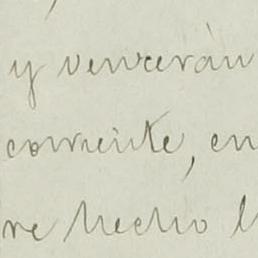 y vencerán
corriente, en
re hecho l